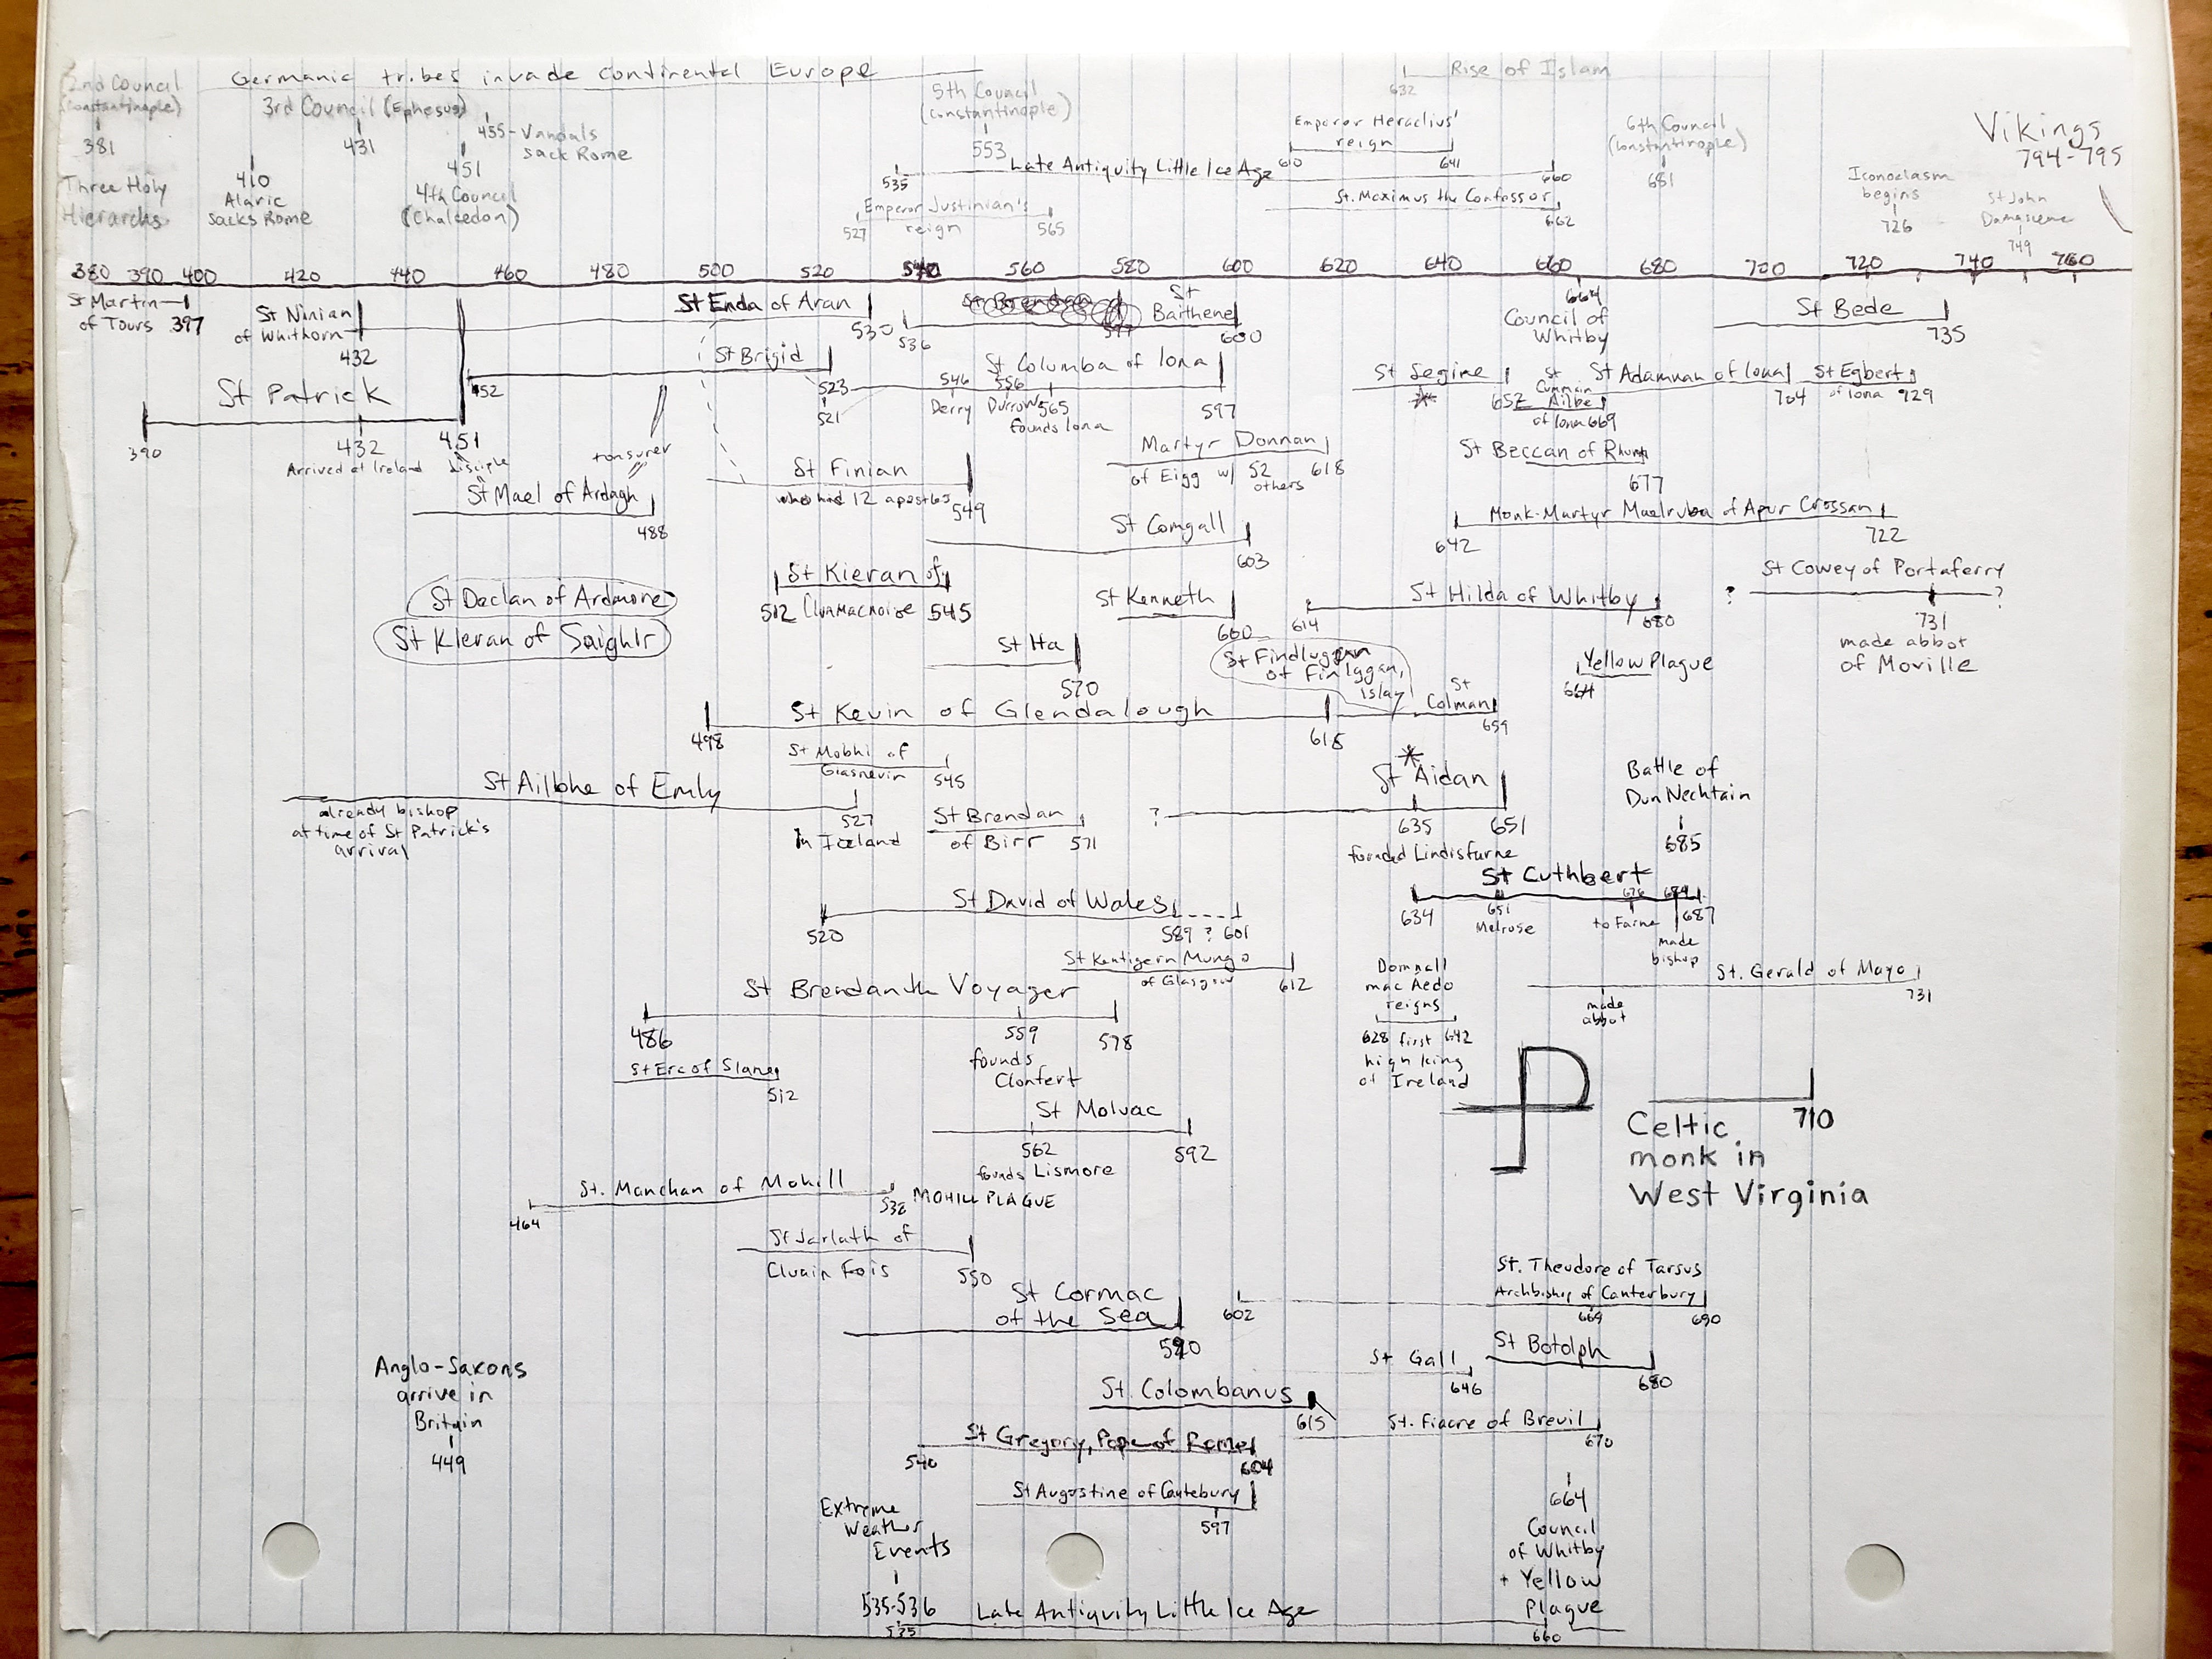 2nd Council
(Constantinople)
381
Three Holy
Hierarchs
Germanic tribes invade continental Europe
3rd Council (Ephesus)
431
455 - Vandals
sack Rome
410
Alaric
sacks Rome
451
4th Council
(Chalcedon)
5th Council
(Constantinople)
553
535 Late Antiquity Little Ice Age 660
Emperor Justinian's
reign
527 565
Emperor Heraclius'
reign
610 641
632 Rise of Islam
St. Maximus the Confessor
662
6th Council
(Constantinople)
681
Vikings
794-795
Iconoclasm
begins
726
St John
Damascene
749
380 390 400 420 440 460 480 500 520 540 560 580 600 620 640 660 680 700 720 740 760
St Martin
of Tours 397
St Ninian
of Whithorn
432
St Enda of Aran
530
536
St Brendan
577
St
Baithene
600
664
Council of
Whitby
St Bede
735
St Patrick
390
432
Arrived at Ireland
451
disciple
452
St Brigid
523
521
St Columba of Iona
546
Derry
556
Durrow
565
founds Iona
597
St Segine
*
652
St
Cummain
Ailbe
of Iona 669
St Adamnan of Iona
704
St Egbert
of Iona 729
tonsured
St Mael of Ardagh
488
St Finian
who had 12 apostles
549
Martyr Donnan
of Eigg w/ 52
others
618
St Beccan of Rhum
677
St Comgall
603
Monk-Martyr Maelruba of Apur Crossan
642 722
St Declan of Ardmore
St Kieran of Saighir
St Kieran of
512 Clonmacnoise 545
St Kenneth
600
St Hilda of Whitby
614 680
St Cowey of Portaferry
? ?
731
made abbot
of Moville
St Ita
570
St Findluggan
of Finlggan,
Islay
Yellow Plague
664
St Kevin of Glendalough
498 618
St
Colman
659
St Mobhi of
Glasnevin 545
St Ailbhe of Emly
already bishop
at time of St Patrick's
arrival
527
in Iceland
St Brendan
of Birr 571
*
St Aidan
?
635
founded Lindisfarne
651
Battle of
Dun Nechtain
685
St Cuthbert
634
651
Melrose
676
to Farne
684
made
bishop
687
St David of Wales
520 589 ? 601
St Kentigern Mungo
of Glasgow 612
Domnall
mac Aedo
reigns
628 first 642
high king
of Ireland
St. Gerald of Mayo
made
abbot
731
St Brendan the Voyager
486
559
founds
Clonfert
578
St Erc of Slane
512
St Moluac
562
founds Lismore
592
710
Celtic
monk in
West Virginia
St. Manchan of Mohill
464 538 MOHILL PLAGUE
St Jarlath of
Cluain Fois 550
St Cormac
of the Sea
590
St. Theodore of Tarsus
Archbishop of Canterbury
602 669 690
St Gall
646
St Botolph
680
Anglo-Saxons
arrive in
Britain
449
St. Colombanus
615
St. Fiacre of Breuil
670
St Gregory, Pope of Rome
540 604
St Augustine of Cantebury
597
Extreme
Weather
Events
535-536
535 Late Antiquity Little Ice Age 660
664
Council
of Whitby
+ Yellow
Plague